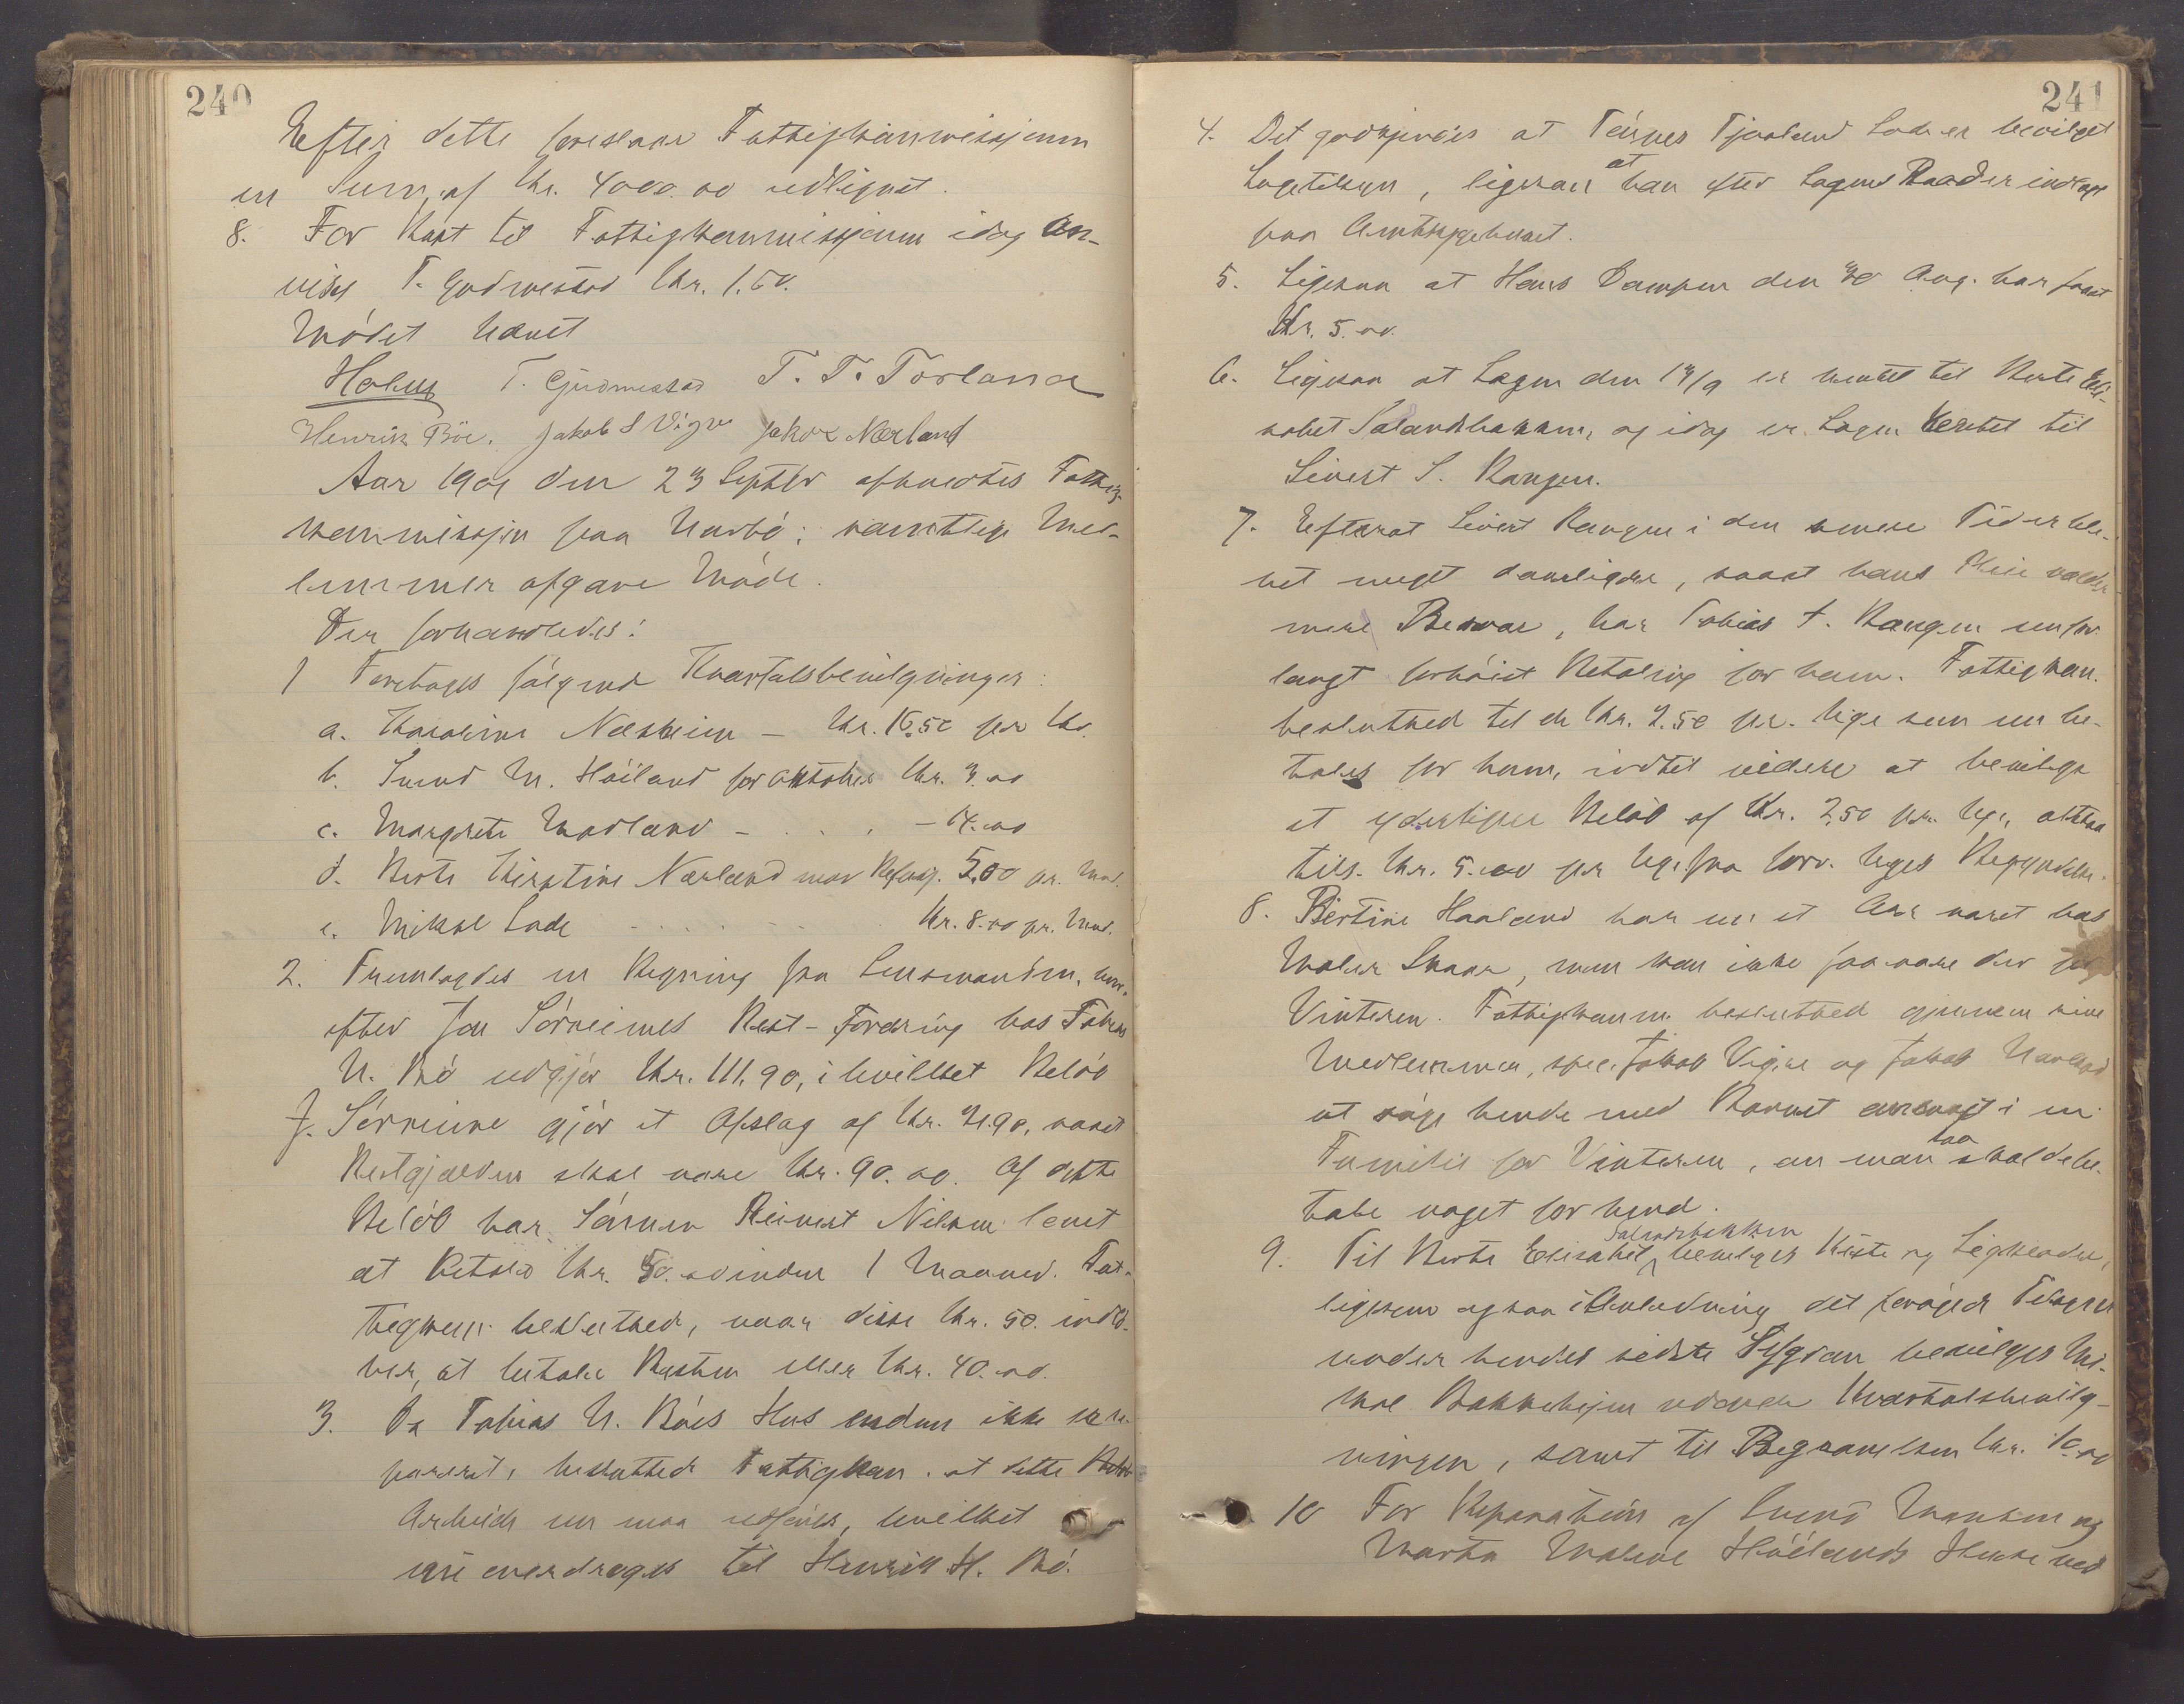 240
Efter dette foreslaar Fattigkommissjonen
en Sum af Kr. 4000.00 udlignet.
8. For Kost til Fattigkommissjonen idag an-
vises T. Gudmestad Kr. 1.60.
Mödet hævet
Holus T. Gudmestad T. T. Torland
Henrik Böe. Jakob S Vigre Jakob Nærland
Aar 1901 den 23 Septbr afholdtes Fattig-
kommissjon paa Narbö; samtlige Med-
lemmer afgave Möde.
Der forhandledes:
1 Foretoges fölgend Kvartalsbevilgninger:
a. Karoline Næsheim – Kr. 16.50 per Kv.
b. Svend M. Höiland for Oktober Kr. 3.00
c. Margrete Madland – . . . – 14.00
d. Berte Kirstine Nærland mod Refusj. 5,00 pr. Md.
e. Mikal Lode . . . . . . Kr. 8.00 pr. Md.
2. Fremlagdes en Regning fra Lensmanden, hvor-
efter Jon Sörreimes Rest-Fordring hos Tobias
N. Bö udgjör Kr. 111.90, i hvilket Belöb
J. Sörreime gjör et Afslag af Kr. 21.90, saaat
Restgjælden skal være Kr. 90.00. Af dette
Belöb har Sönnen Reinert Nilsen lovet
at betale Kr. 50.00 inden 1 Maaned. Fat-
tigkom. besluttede, naar disse Kr. 50. indlö-
ber, at betale Resten eller Kr. 40.00.
3. Da Tobias N. Böes Hus endnu ikke er re-
pareret, besluttede Fattigkom. at dette
Arbeide nu maa udföres, hvilket
overdrages til Henrik H. Bö.
241
4. Det godkjendes at Tönnes Tjaaland Lode er bevilget
Lægetilsyn, ligesaa at han efter Lægens Raad er indlagt
paa Amtssygehuset.
5. Ligesaa at Hans Dampen den 30 Aug. har faaet
Kr. 5.00.
6. Ligesaa at Lægen den 14/9 er hentet til Berte Eli-
sabet Salandsbakken, og idag er Lægen hentet til
Sivert S. Kongen.
7. Efterat Sivert Kangen i den senere Tid er ble-
vet meget daarligere, saaat hans Pleie volder
mere Besvær, har Tobias T. Kangen nu for-
langt forhöiet Betaling for ham. Fattigkom.
besluttede til de Kr. 2.50 pr. Uge som nu be-
tales for ham, indtil videre at bevilge
et yderligere Belöb af Kr. 2,50 pr. Uge, altsaa
tils. Kr. 5.00 per Uge fra forr. Uges Begyndelse.
8. Bertine Haaland har nu et Aar været hos
Malene Skaar, men kan ikke faa være der
Vinteren. Fattigkomm. besluttede gjennem sine
Medlemmer, spec. Jakob Vigre og Jakob Nærland
at söge hende med Barnet anbragt i en
Familie for Vinteren, om man saa skulde be-
tale noget for hend.
9. Til Berte Elisabet Salandsbakken bevilges Kiste og Ligklæder,
ligesom ogsaa i Anledning det forögede Tilsyn
under hendes sidste Sygdom bevilges Mi-
kal Bakkehjem udover Kvartalsbevilg-
ningen, samt til Begravelsen Kr. 10.00
10 For Reparation af Svend Monsen og
Marta Malene Höilands Huse ved